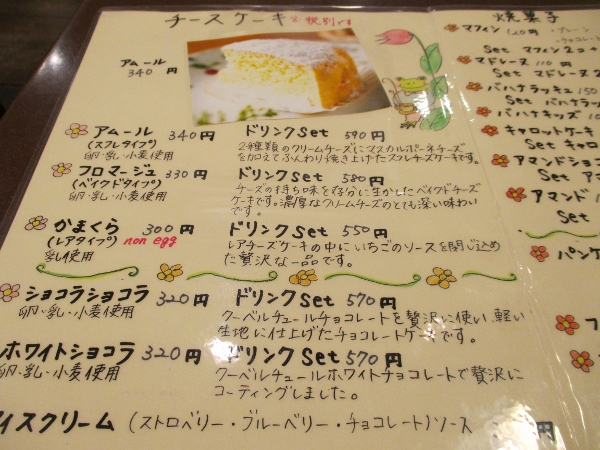 チースケーキ ※税別です
アムール
340円
アムール 340円 ドリンクSet 590円
(スフレタイプ)
卵・乳・小麦使用
2種類のクリームチーズにマスカルポーネチーズ
を加えてふんわり焼き上げたスフレチーズケーキです。
フロマージュ 330円 ドリンクSet 580円
(ベイクドタイプ)
卵・乳・小麦使用
チーズの持ち味を存分に生かしたベイクドチーズ
ケーキです。濃厚なクリームチーズのとても深い味わい
です。
かまくら 300円 ドリンクSet 550円
(レアタイプ) non egg
乳使用
レアチーズケーキの中にいちごのソースを閉じ込め
た贅沢な一品です。
ショコラショコラ 320円 ドリンクSet 570円
卵・乳・小麦使用
クーベルチュールチョコレートを贅沢に使い、軽い
生地に仕上げたチョコレートケーキです。
ホワイトショコラ 320円 ドリンクSet 570円
卵・乳・小麦使用
クーベルチュールホワイトチョコレートで贅沢に
コーティングしました。
イスクリーム (ストロベリー・ブルーベリー・チョコレート)ソース 円
焼菓子
マフィン 120円 ・プレーン
・チョコレート
Set マフィン2コ+
マドレーヌ 110円
Set マドレーヌ2
バハナラッキュ 150
Set バハナラッ
バハナキッズ 10
キャロットケーキ
Set キャロ
アマンドショコ
Set アマ
アマンド
Set
パンケ
フ